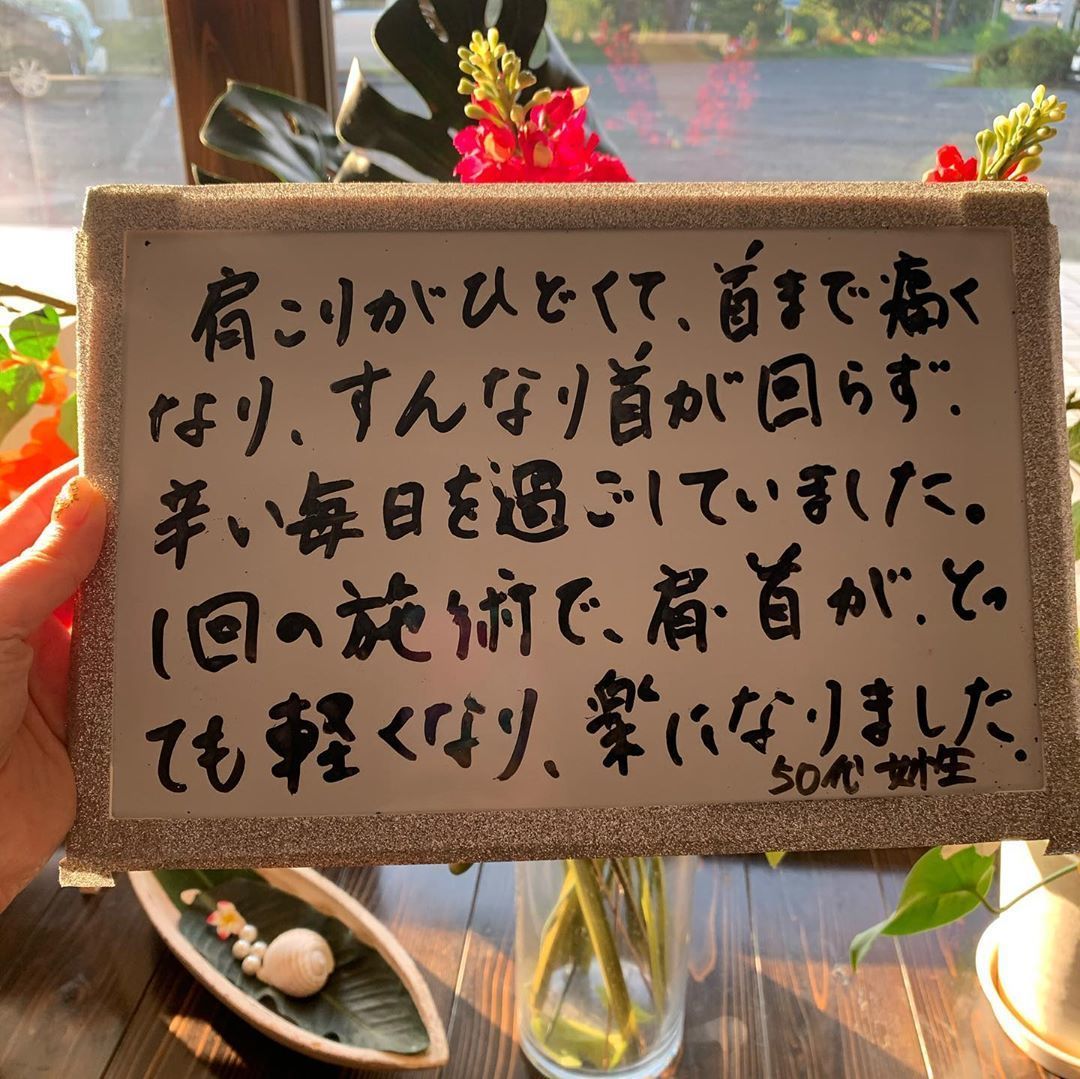 肩こりがひどくて、首まで痛く
なり、すんなり首が回らず、
辛い毎日を過ごしていました。
1回の施術で、肩・首が、とっ
ても軽くなり、楽になりました。
50代 女性